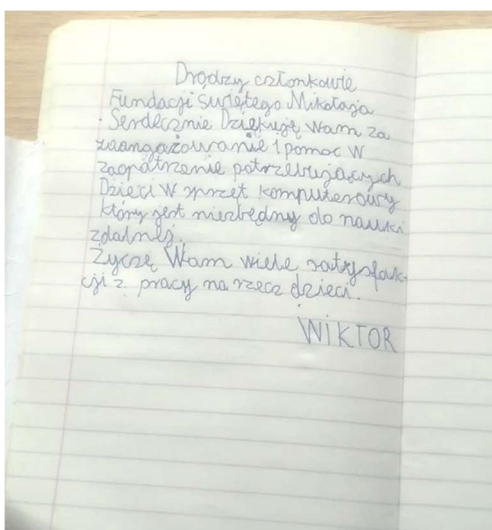 Drodzy członkowie
Fundacji świętego Mikołaja
Serdecznie Dziękuję Wam za
zaangażowanie i pomoc w
zaopatrzenie potrzebujących
Dzieci w sprzęt komputerowy
który jest niezbędny do nauki
zdalnej.
Życzę Wam wiele satysfak-
cji z pracy na rzecz dzieci.
WIKTOR